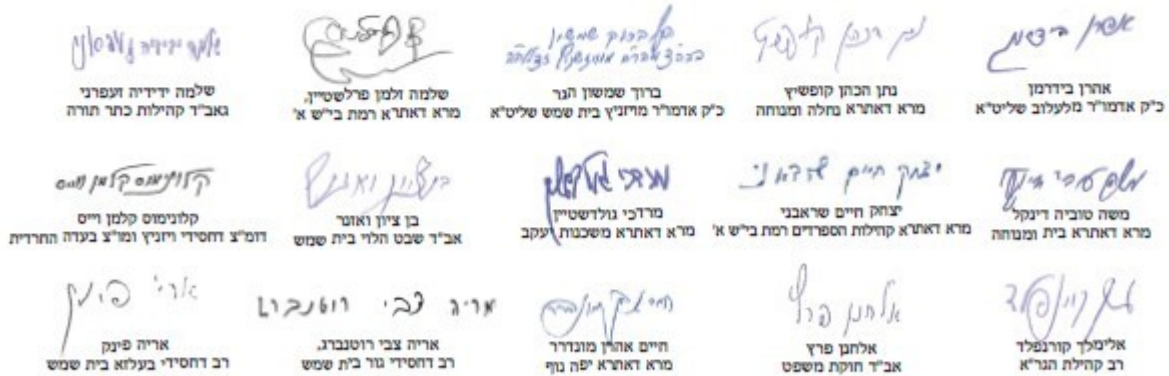 אהרן בידרמן
כ"ק אדמו"ר מלעלוב שליט"א
נתן הכהן קופשיץ
מרא דאתרא נחלה ומנוחה
ברוך שמשון הגר
כ"ק אדמו"ר מויזניץ בית שמש שליט"א
שלמה זלמן פרלשטיין,
מרא דאתרא רמת בי"ש א'
שלמה ידידיה זעפרני
גאב"ד קהילות כתר תורה
משה טוביה דינקל
מרא דאתרא בית ומנוחה
יצחק חיים שראבני
מרא דאתרא קהילות הספרדים רמת בי"ש א'
מרדכי גולדשטיין
מרא דאתרא משכנות יעקב
בן ציון ואזנר
אב"ד שבט הלוי בית שמש
קלונימוס קלמן וייס
דומ"צ דחסידי ויזניץ ומו"צ בעדה החרדית
אלימלך קורנפלד
רב קהילת הגר"א
אלחנן פרץ
אב"ד חוקת משפט
חיים אהרן מונדרר
מרא דאתרא יפה נוף
אריה צבי רוטנברג.
רב דחסידי גור בית שמש
אריה פינק
רב דחסידי בעלזא בית שמש